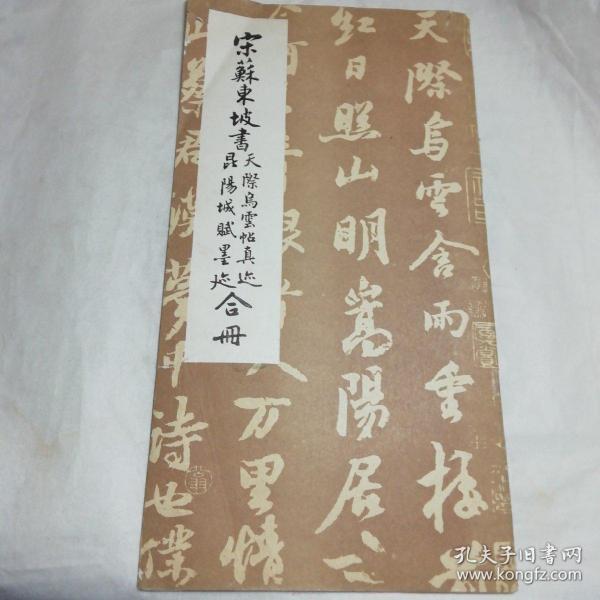 宋蘇東坡書天際烏雲帖真迹
昆陽城賦墨迹合冊
天際烏雲含雨重樓前
紅日照山明嵩陽居士
今何在青眼看人万里情
此蔡君謨夢中詩也僕
孔夫子旧书网
www.kongfz.com